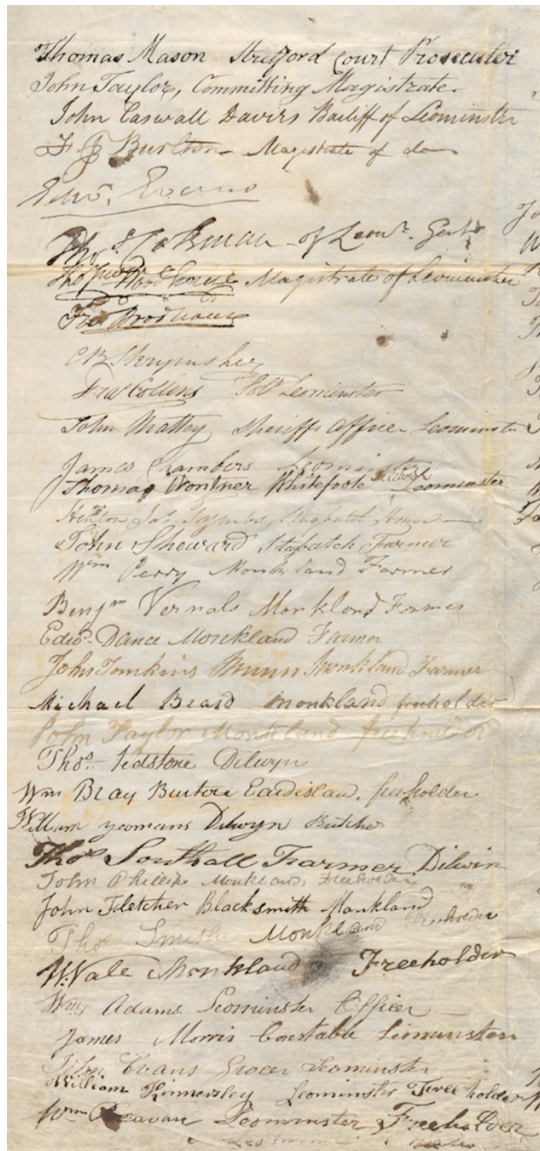 Thomas Mason Stretford Court Prosecuter
John Taylor, Committing Magistrate
John Caswall Davies Bailiff of Leominster
Burlton Magistrate of do
Edwd. Evans
of Leomr. Gent
Woodhouse Magistrate of Leominster
Woodhouse
Fras Collins Leominster
John Mattey Sheriffs Office Leominster
James Chambers Leominster
Thomas Wontner Whitefoote Leominster
John Sheward Stagbatch Farmer
Wm Perry Monkland Farmer
Benjm Vernals Monkland Farmer
Edwd. Dance Monkland Farmer
John Tomkins Munn Monkland Farmer
Michael Beard Monkland freeholder
John Taylor Monkland freeholder
Thos. Tedstone Dilwyn
Wm Bray Burton Eardisland, freeholder
William Yeomans Dilwyn Butcher
Thos Southall Farmer Dilwin
John Phillips Monkland, Freeholder
John Fletcher Blacksmith Monkland
Thos Smith Monkland Freeholder
W. Vale Monkland Freeholder
Wm Adams Leominster Officer
James Morris Constable Liominston
John Evans Grocer Leominster
William Kinnersley Leominster Freeholder
Wm Beavan Leominster Freeholder